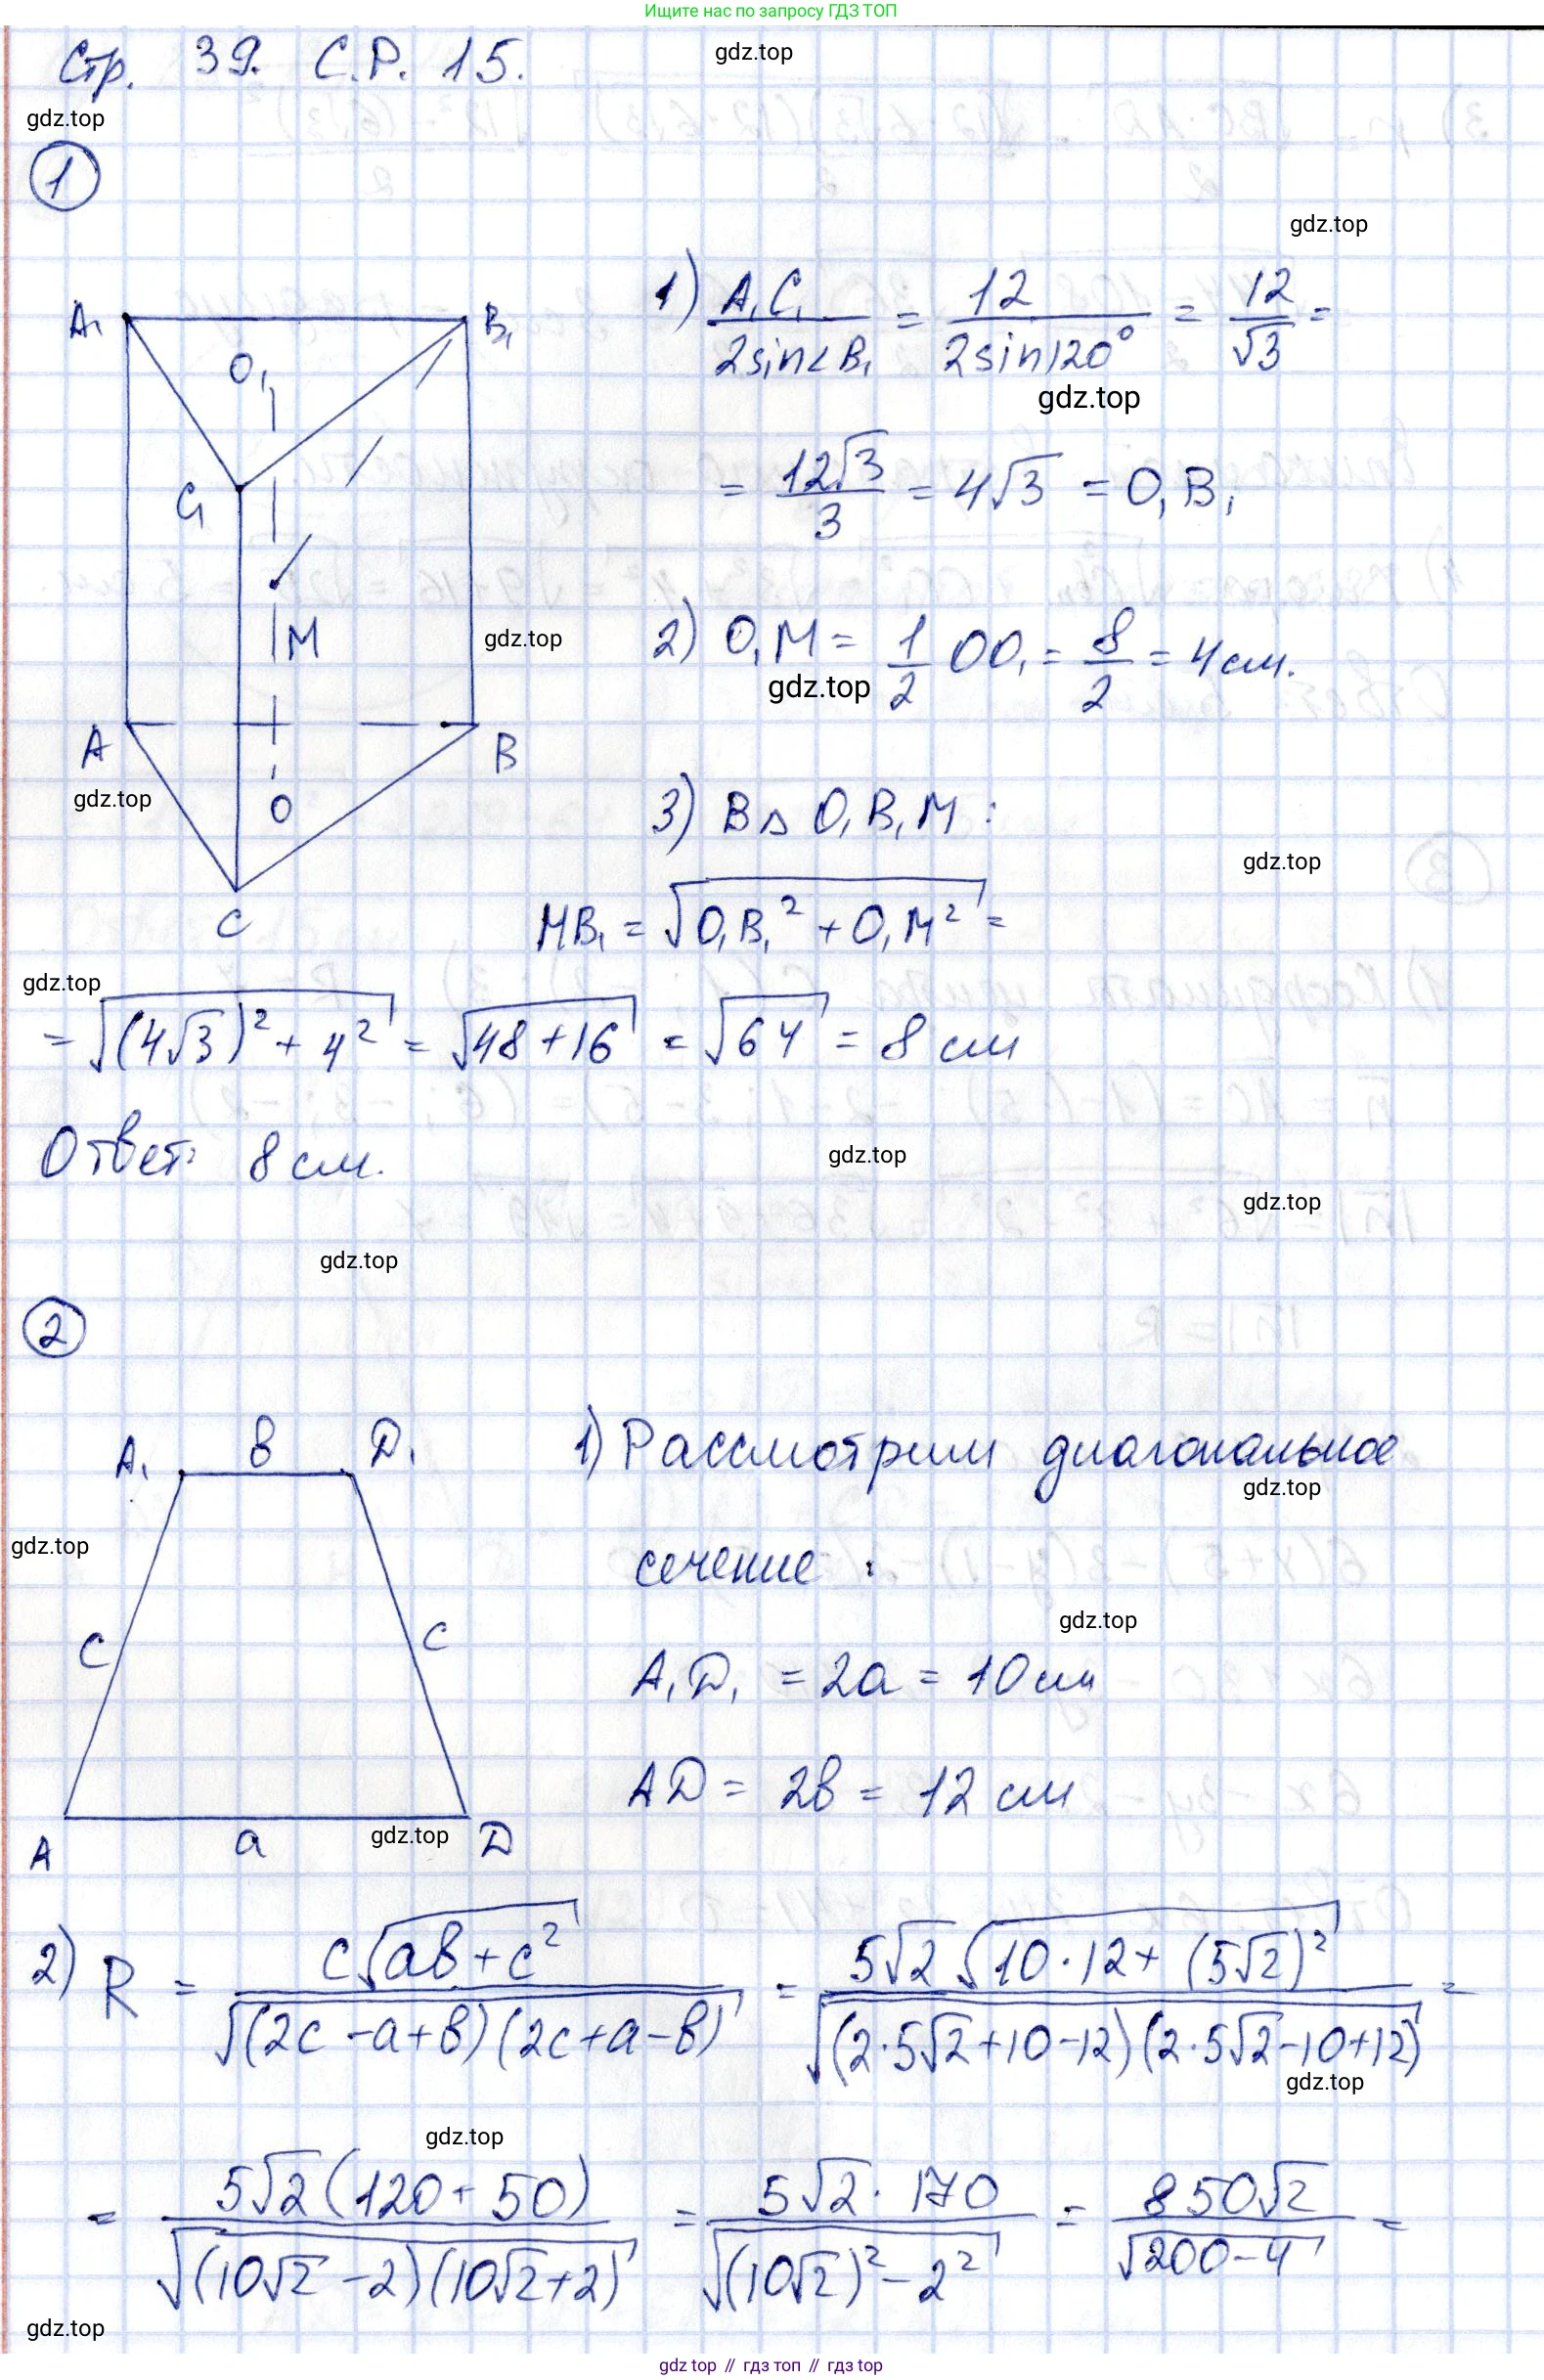 Ищите нас по запросу ГДЗ ТОП
Стр. 39. С.Р. 15.
gdz.top
gdz.top
1
gdz.top
A₁ B₁ O₁ C₁ M A B O C
1) A₁C₁/(2sin∠B₁) = 12/(2sin120°) = 12/√3 =
gdz.top
= 12√3/3 = 4√3 = O₁B₁
gdz.top
2) O₁M = 1/2 OO₁ = 8/2 = 4 см.
gdz.top
gdz.top
3) В △ O₁B₁M :
gdz.top
MB₁ = √(O₁B₁² + O₁M²) =
gdz.top
= √((4√3)² + 4²) = √(48+16) = √64 = 8 см
Ответ: 8 см.
gdz.top
gdz.top
gdz.top
2
A₁ b D₁
1) Рассмотрим диагональное
gdz.top
gdz.top
сечение :
gdz.top
c c
A₁D₁ = 2a = 10 см
AD = 2b = 12 см
gdz.top
A a D
2) R = c√(ab+c²)/√((2c-a+b)(2c+a-b)) = 5√2√(10·12+(5√2)²)/√((2·5√2+10-12)(2·5√2-10+12)) =
gdz.top
gdz.top
= 5√2(120+50)/√((10√2-2)(10√2+2)) = 5√2·170/√((10√2)²-2²) = 850√2/√(200-4) =
gdz.top
gdz.top // гдз топ // гдз.top